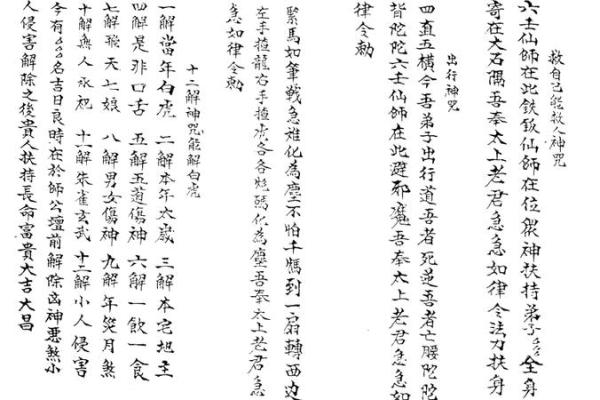 救自己能救人神咒
六壬仙師在此鉄鈑仙師在位眾神扶持弟子全身
寄在大石隅吾奉太上老君急急如律令法力扶身
出行神咒
四直五橫今吾弟子出行道吾者死逆吾者亡腰陀陀
皆陀陀六壬仙師在此避邪魔吾奉太上老君急急如
律令勅
緊馬如筆戰急化為塵不怕千到一扇轉西边
左手揸龍右手揸虎各各化為塵吾奉太上老君急
急如律令勅
十二解神咒能解白虎
一解當年白虎 二解本年太歲 三解本宅地主
四解是非口舌 五解五道傷神 六解一飲一食
七解飛天七娘 八解男女傷神 九解年災月煞
十解無人永祀 十一解朱雀玄武 十二解小人侵害
今有名吉日良時在於師公壇前解除凶神惡煞小
人侵害解除之後貴人扶持長命富貴大吉大昌